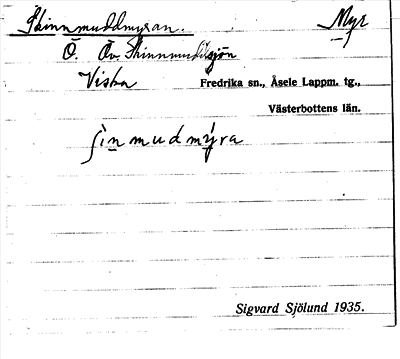 Skinnmuddmyran. Myr
Ö. Ön. Skinnmuddsjön
Viska Fredrika sn., Åsele Lappm. tg.,
Västerbottens län.
ʃinmudmýra
Sigvard Sjölund 1935.